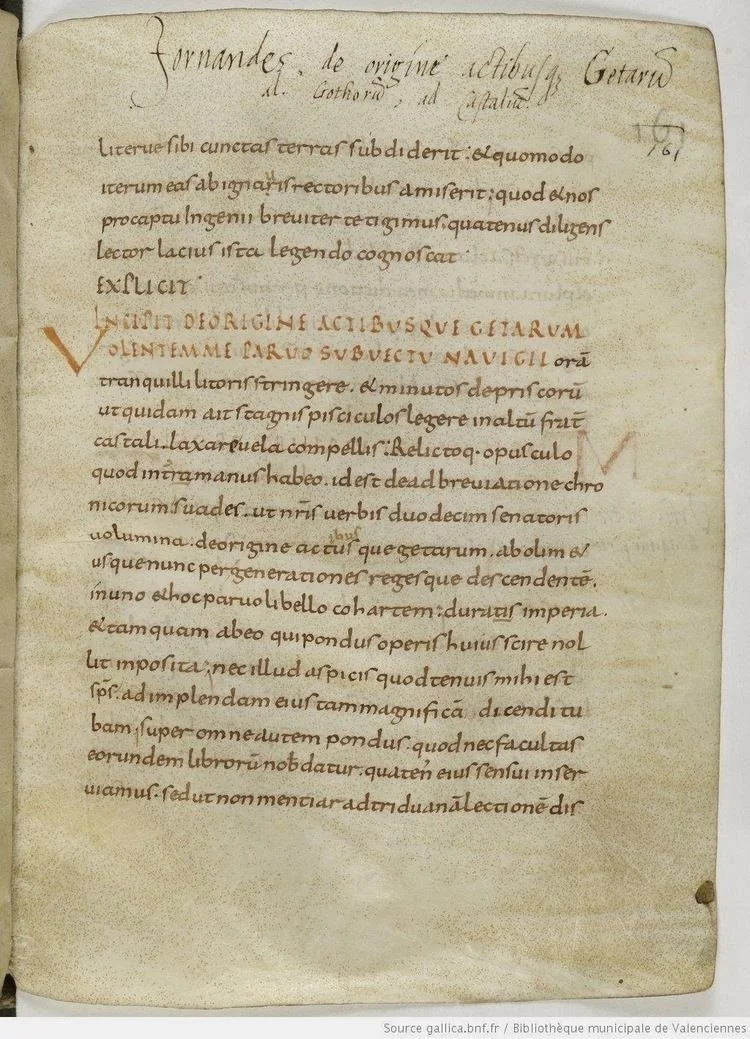 Jornandes de origine actibusq; Getarū
al. Gothorū, ad Castaliū.
161
literue sibi cunctas terras subdiderit; et quomodo
iterum eas ab ignaris rectoribus amiserit; quod et nos
pro captu Ingenii breuiter tetigimus. quatenus diligens
lector lacius ista legendo cognoscat
EXPLICIT
INCIPIT DE ORIGINE ACTIBUSQUE GETARUM
VOLENTEM ME PARUO SUBUECTU NAUIGII orā
tranquilli litoris stringere. et minutos de priscorū
ut quidam ait stagnis pisciculos legere in altū frat̄
castali. laxare uela compellis; Relictoq. opusculo
quod int̄ra manus habeo. id est de adbreuiatione chro
nicorum suades. ut nr̄is uerbis duodecim senatoris
uolumina. de origine actusque getarum. ab olim et
ibus
usque nunc per generationes regesque descendentē.
in uno et hoc paruo libello cohartem; duratis imperia.
et tamquam ab eo qui pondus operis huius scire nol
lit imposita; nec illud aspicis quod tenuis mihi est
sp̄s. ad implendam eius tam magnificā dicendi tu
bam; super omne autem pondus. quod nec facultas
eorundem librorū nob̄ datur. quaten̄ eius sensui inser
uiamus. sed ut non mentiar ad triduanā lectionē dis
Source gallica.bnf.fr / Bibliothèque municipale de Valenciennes